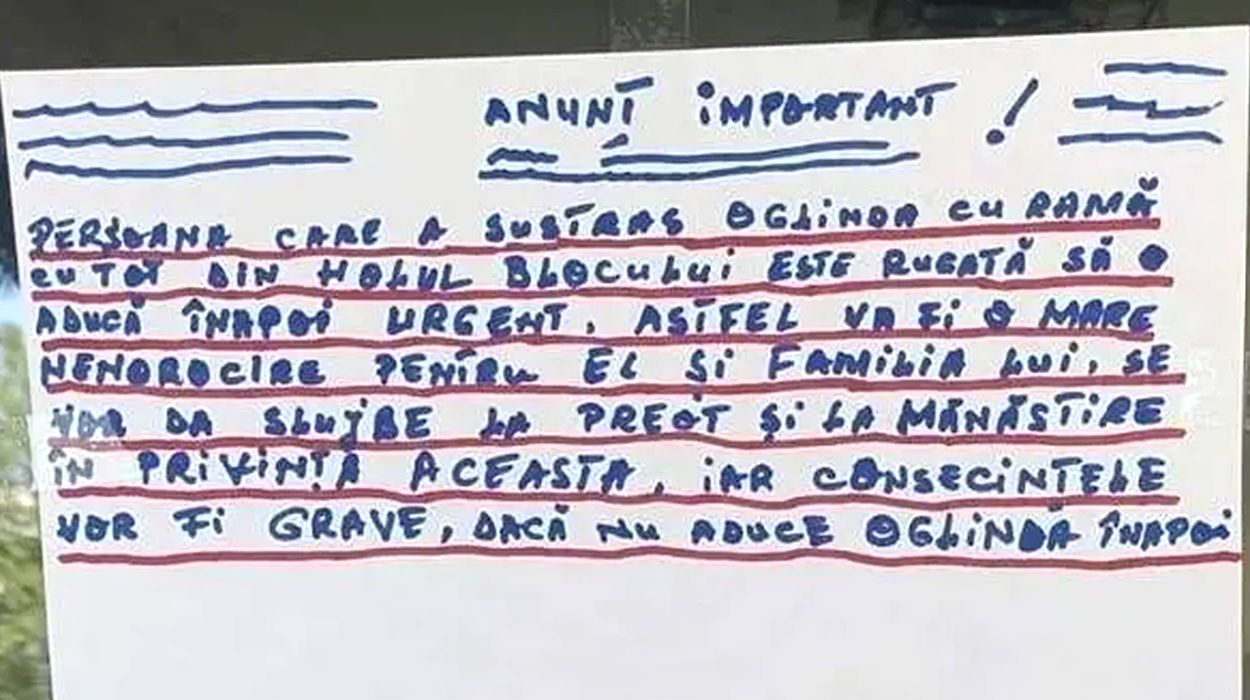 ANUNȚ IMPORTANT !
PERSOANA CARE A SUSTRAS OGLINDA CU RAMĂ
CU TOT DIN HOLUL BLOCULUI ESTE RUGATĂ SĂ O
ADUCĂ ÎNAPOI URGENT. ASTFEL VA FI O MARE
NENOROCIRE PENTRU EL ȘI FAMILIA LUI, SE
VOR DA SLUJBE LA PREOT ȘI LA MĂNĂSTIRE
ÎN PRIVINȚA ACEASTA, IAR CONSECINTELE
VOR FI GRAVE, DACĂ NU ADUCE OGLINDA ÎNAPOI